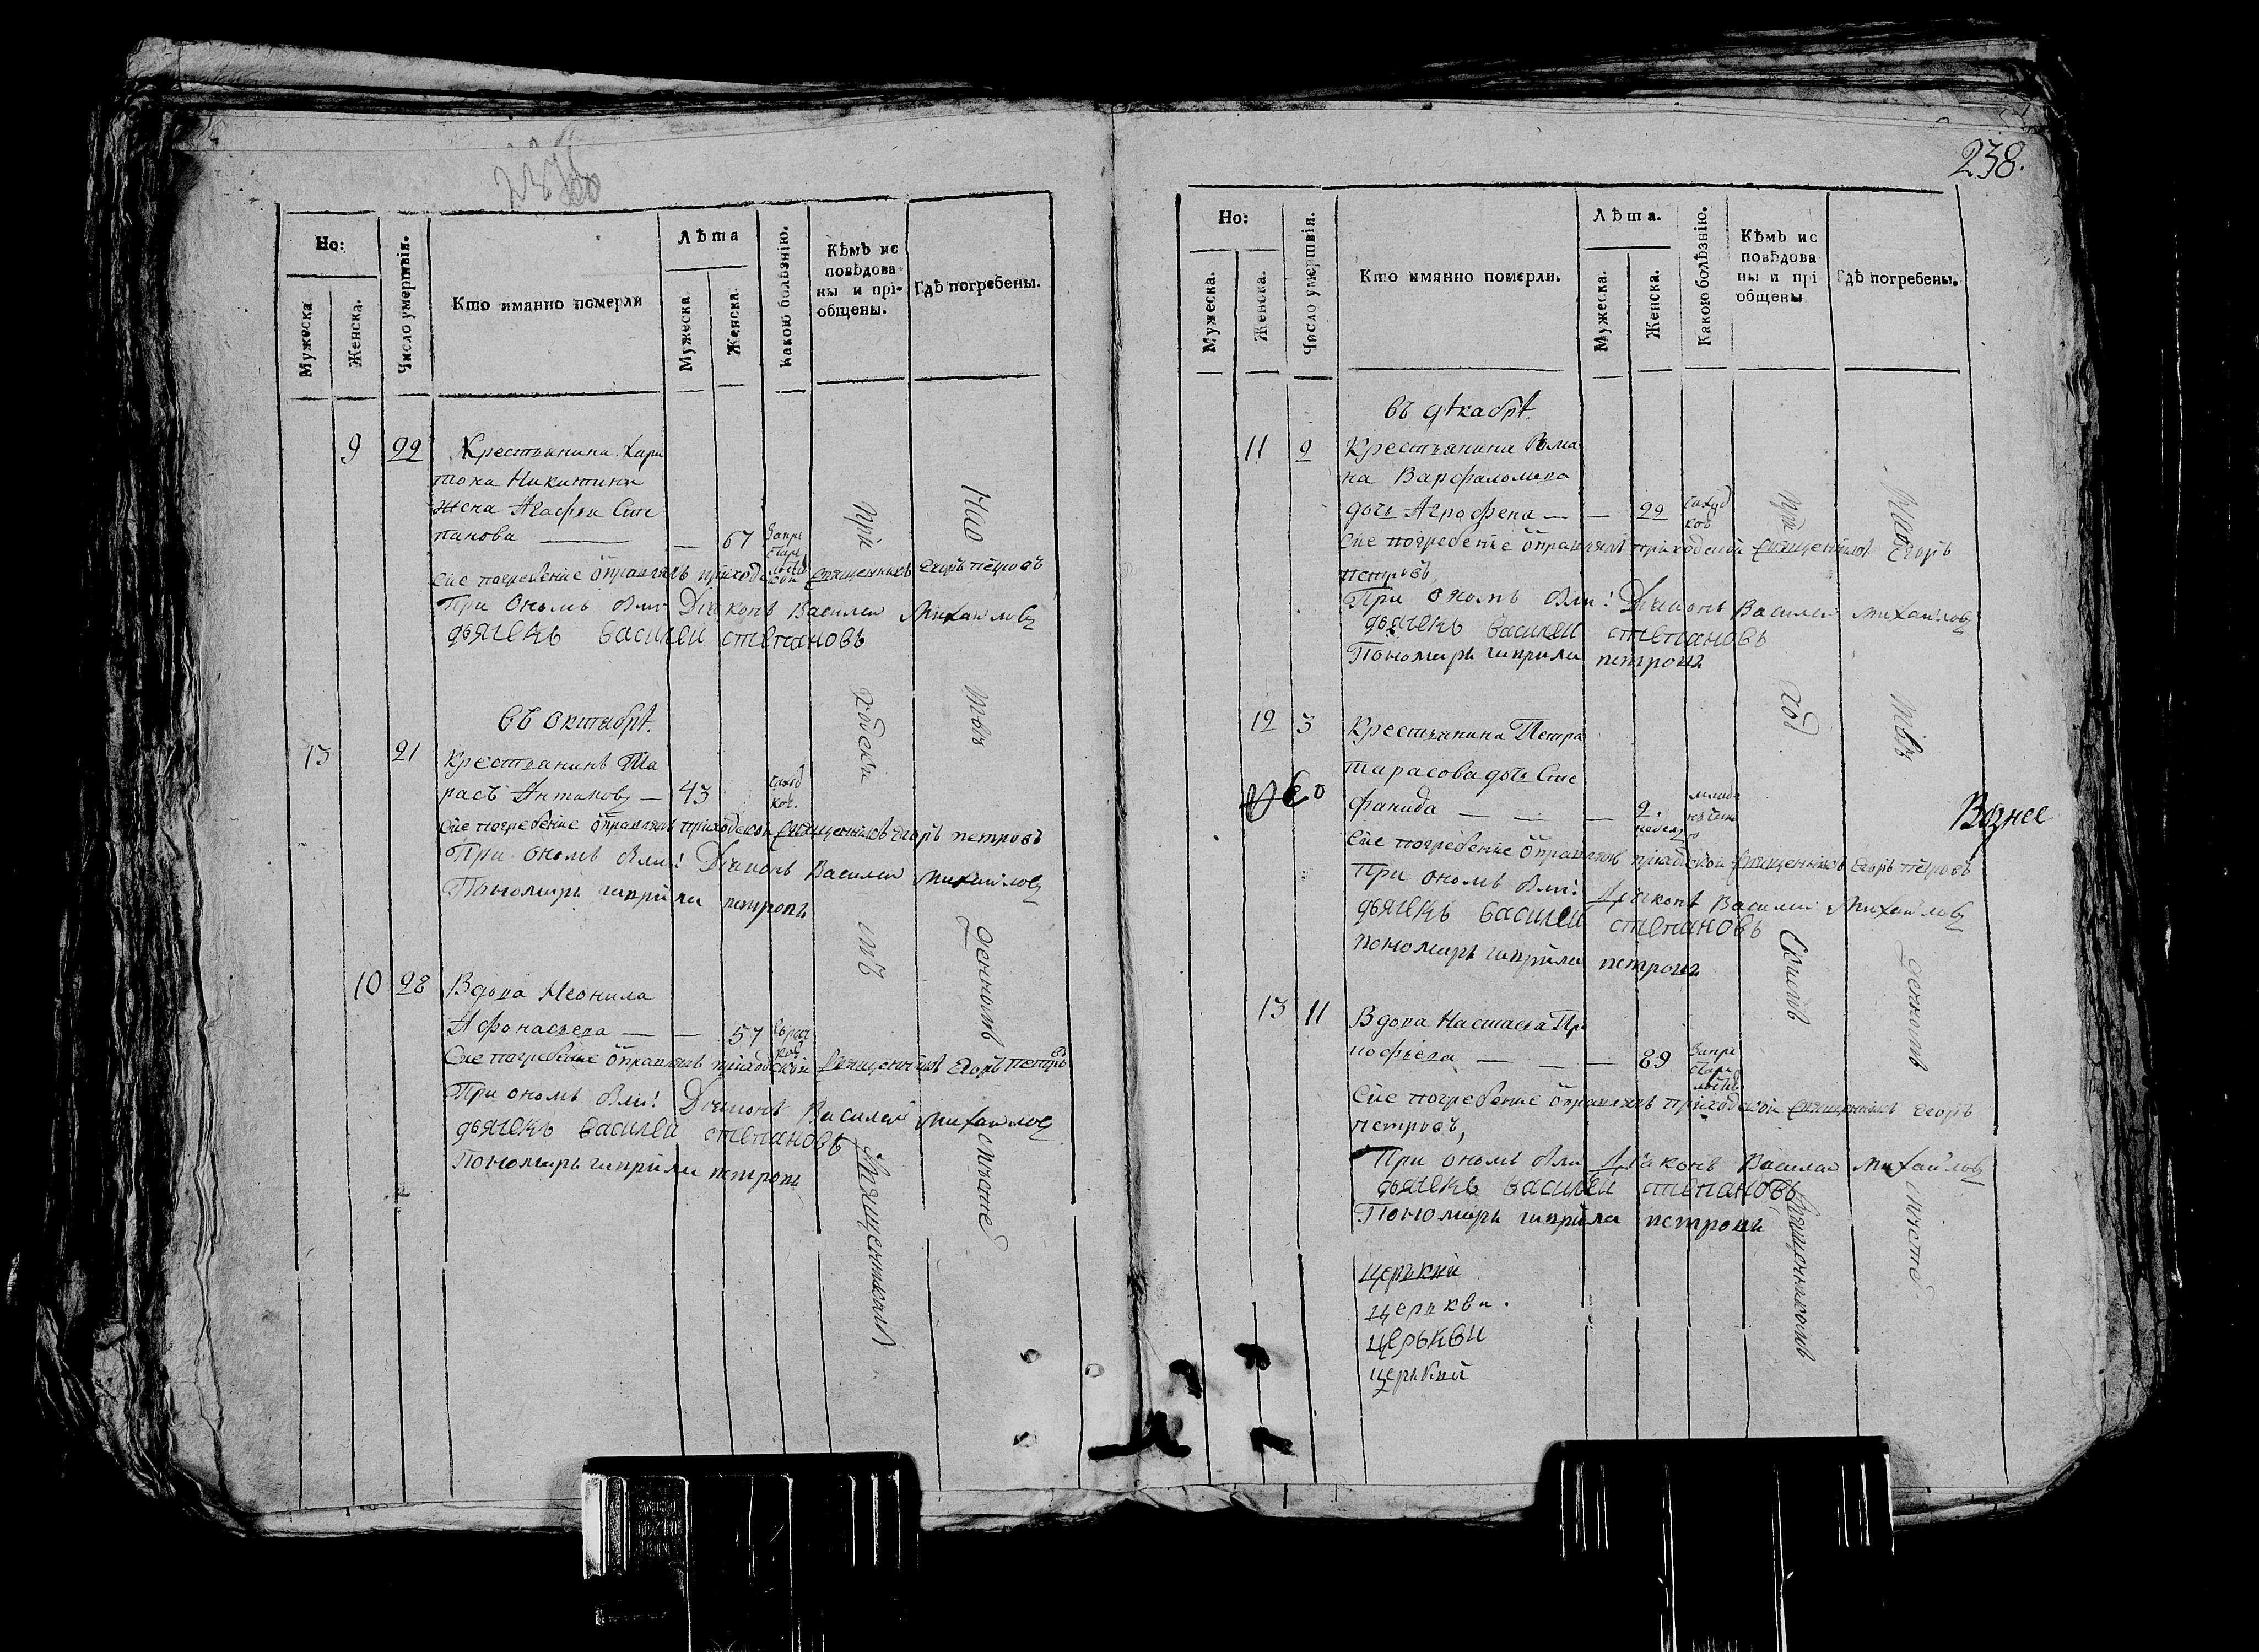 238.
Но:
Мужеска
Женска.
Число умертвія.
Кто имянно померли
Лѣта
Мужеска.
Женска.
Какою болѣзнію.
Кѣмъ ис
повѣдова
ны и прі-
общены.
Гдѣ погребены.
9 22 Крестьянина Хари
тона Никитина
жена Агафья Сте
панова — — 67
Сие погребение отправлялъ приходской священникъ Егоръ Петровъ
При ономъ были Дьяконъ Василей Михайловъ
дьячекъ василеи степановъ
въ октябрѣ.
13 21 Крестьянинъ Та
расъ Антиповъ — 43
Сие погребение отправлялъ приходской священникъ Егоръ петровъ
При ономъ были: Дьяконъ Василей Михайловъ
Пономарь гаврила петровъ
10 28 Вдова Неонила
Афонасьева — — 57
Сие погребение отправлялъ приходской священникъ Егоръ Петровъ
При ономъ были: Дьяконъ Василей Михайловъ
дьячекъ василеи степановъ
Пономарь гаврила петровъ
при
ходски
мъ
священникомъ
На
отве
денномъ
месте
Но:
Мужеска.
Женска.
Число умертвія.
Кто имянно померли.
Лѣта.
Мужеска.
Женска.
Какою болѣзнію.
Кѣмъ ис
повѣдова
ны и прі
общены
Гдѣ погребены.
въ декабрѣ
11 2 Крестьянина Рома
на Варфаломева
дочь Аграфена — — 22
Сие погребение отправлялъ приходской священникъ Егоръ
петровъ,
При ономъ были: Дьяконъ Василей Михайловъ
дьячекъ василеи степановъ
Пономарь гаврила петровъ
12 3 Крестьянина Петра
тарасова дочь Сте
фанида — — — 2.
недел
Вознее
Сие погребение отправлялъ приходской священникъ Егоръ Петровъ
При ономъ были: Дьяконъ Василей Михайловъ
дьячекъ василеи степановъ
пономарь гаврила петровъ
13 11 Вдова Настасья Пр
кофьева — — — 89
Сие погребение отправлялъ приходской священникъ Егоръ
петровъ,
При ономъ были Дьяконъ Василей Михайловъ
дьячекъ василеи степановъ
Пономарь гаврила петровъ
при
ход
скимъ
священникомъ
На
отве
денномъ
месте
церькви
церькви.
церькви
церькви